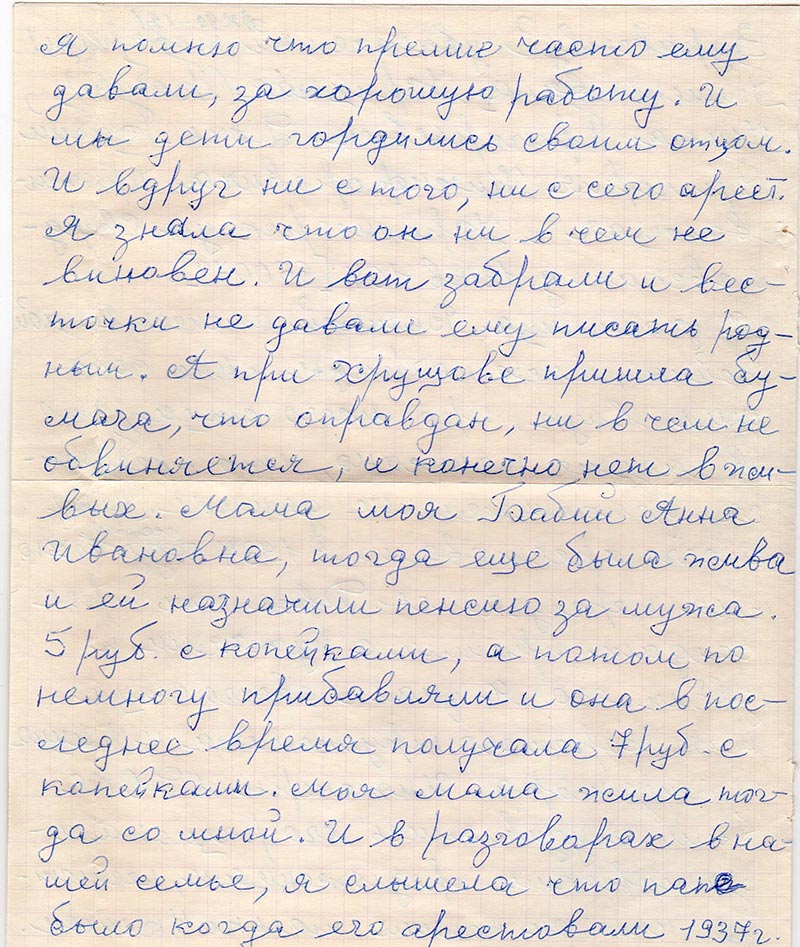 Я помню что премие часто ему
давали, за хорошую работу. И
мы дети гордились своим отцом.
И вдруг ни с того, ни с сего арест.
Я знала что он ни в чем не
виновен. И вот забрали и вес-
точки не давали ему писать род-
ным. А при Хрущове пришла бу-
мага, что оправдан, ни в чем не
обвиняется, и конечно нет в жи-
вых. Мама моя Бабий Анна
Ивановна, тогда еще была жива
и ей назначили пенсию за мужа.
5 руб. с копейками, а потом по
немногу прибавляли и она в пос-
леднее время получала 7 руб. с
копейками. Моя мама жила тог-
да со мной. И в разговорах в на-
шей семье, я слышела что папе
было когда его арестовали 1937г.